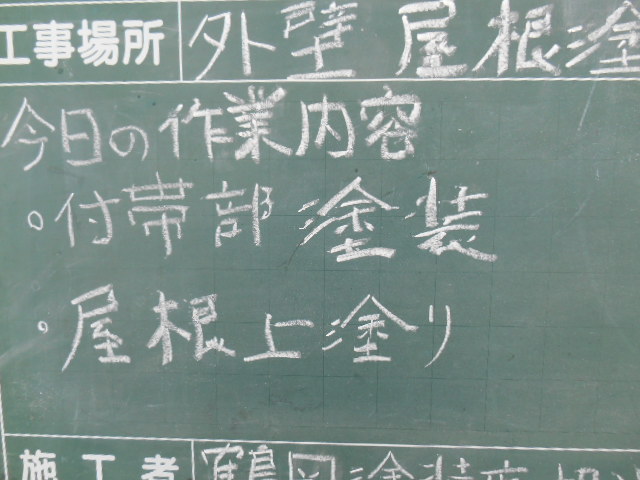 工事場所 外壁 屋根塗
今日の作業内容
。付帯部塗装
。屋根上塗り
施工者 塗装